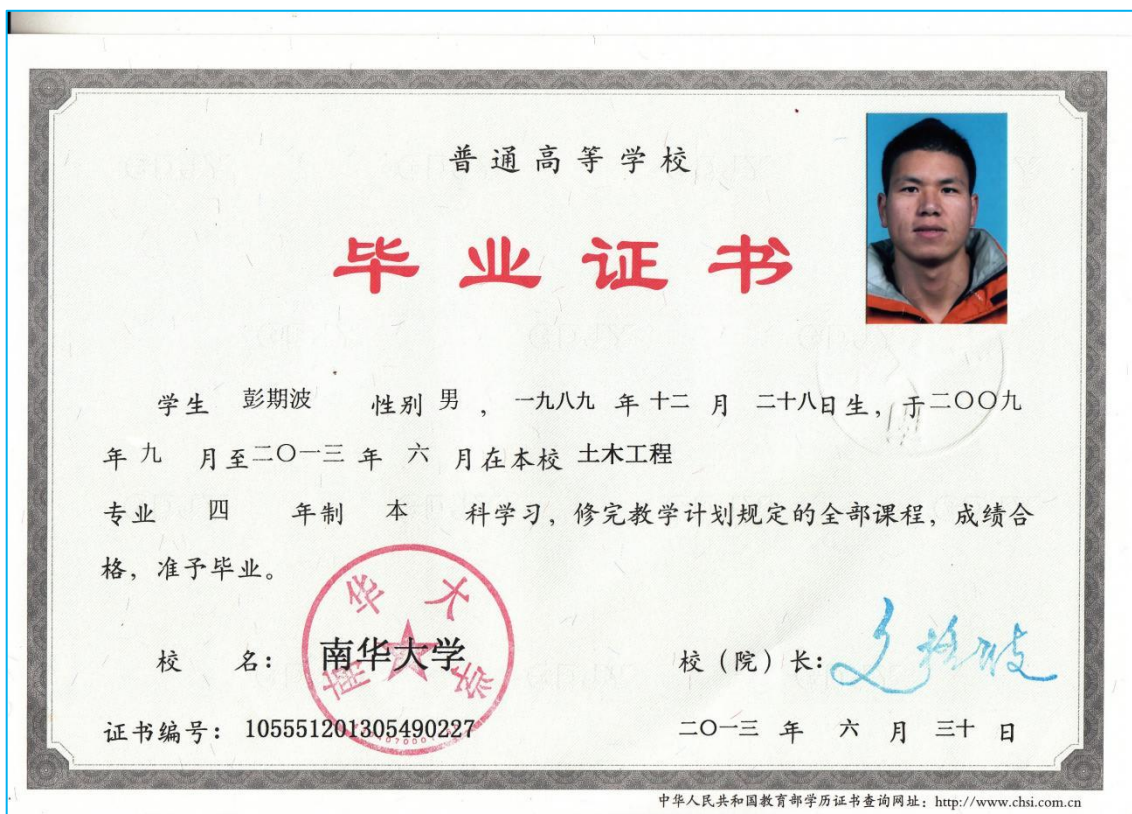 普通高等学校
毕业证书
学生 彭期波 性别 男 ，一九八九 年 十二 月 二十八日生，于二〇〇九
年 九 月至二〇一三 年 六 月在本校 土木工程
专业 四 年制 本 科学习，修完教学计划规定的全部课程，成绩合
格，准予毕业。
南华大学
校 名： 南华大学 校（院）长：
证书编号： 105551201305490227 二〇一三 年 六 月 三十 日
中华人民共和国教育部学历证书查询网址：http://www.chsi.com.cn